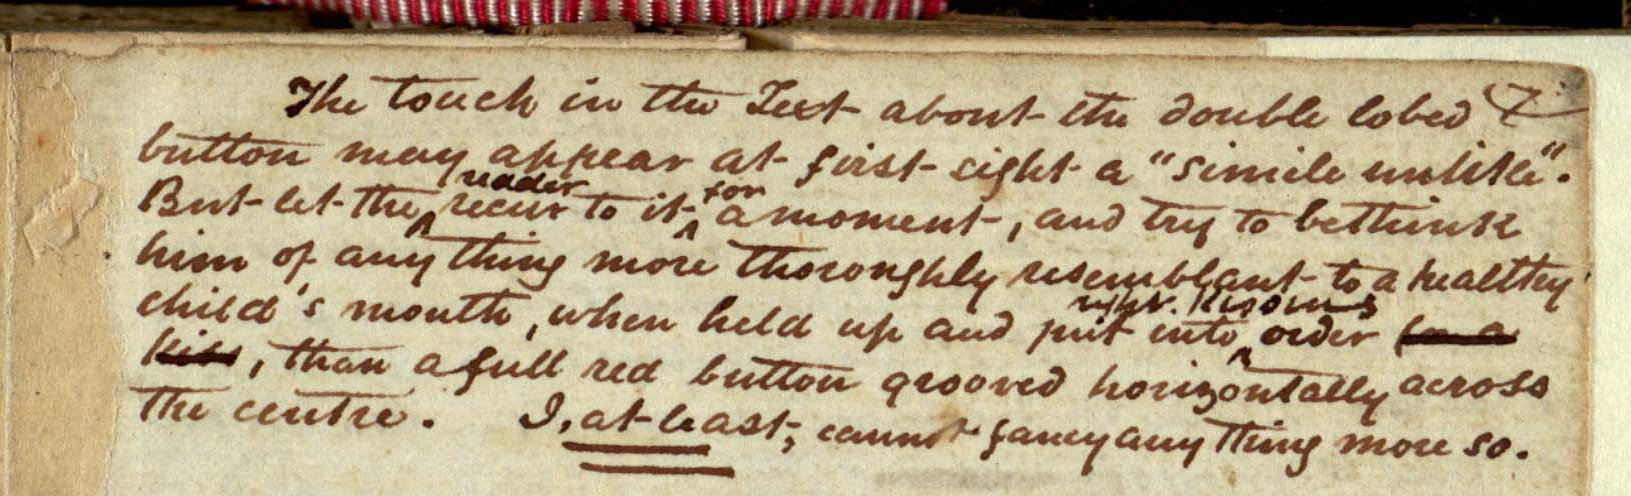 The touch in the Text about the double lobed 7
button may appear at first sight a "simile unlike".
But let the reader recur to it for a moment, and try to bethink
him of anything more thoroughly resemblant to a healthy
child's mouth, when held up and put into right kissing order for a
kiss, than a full red button grooved horizontally across
the centre. I, at least, cannot fancy any thing more so.